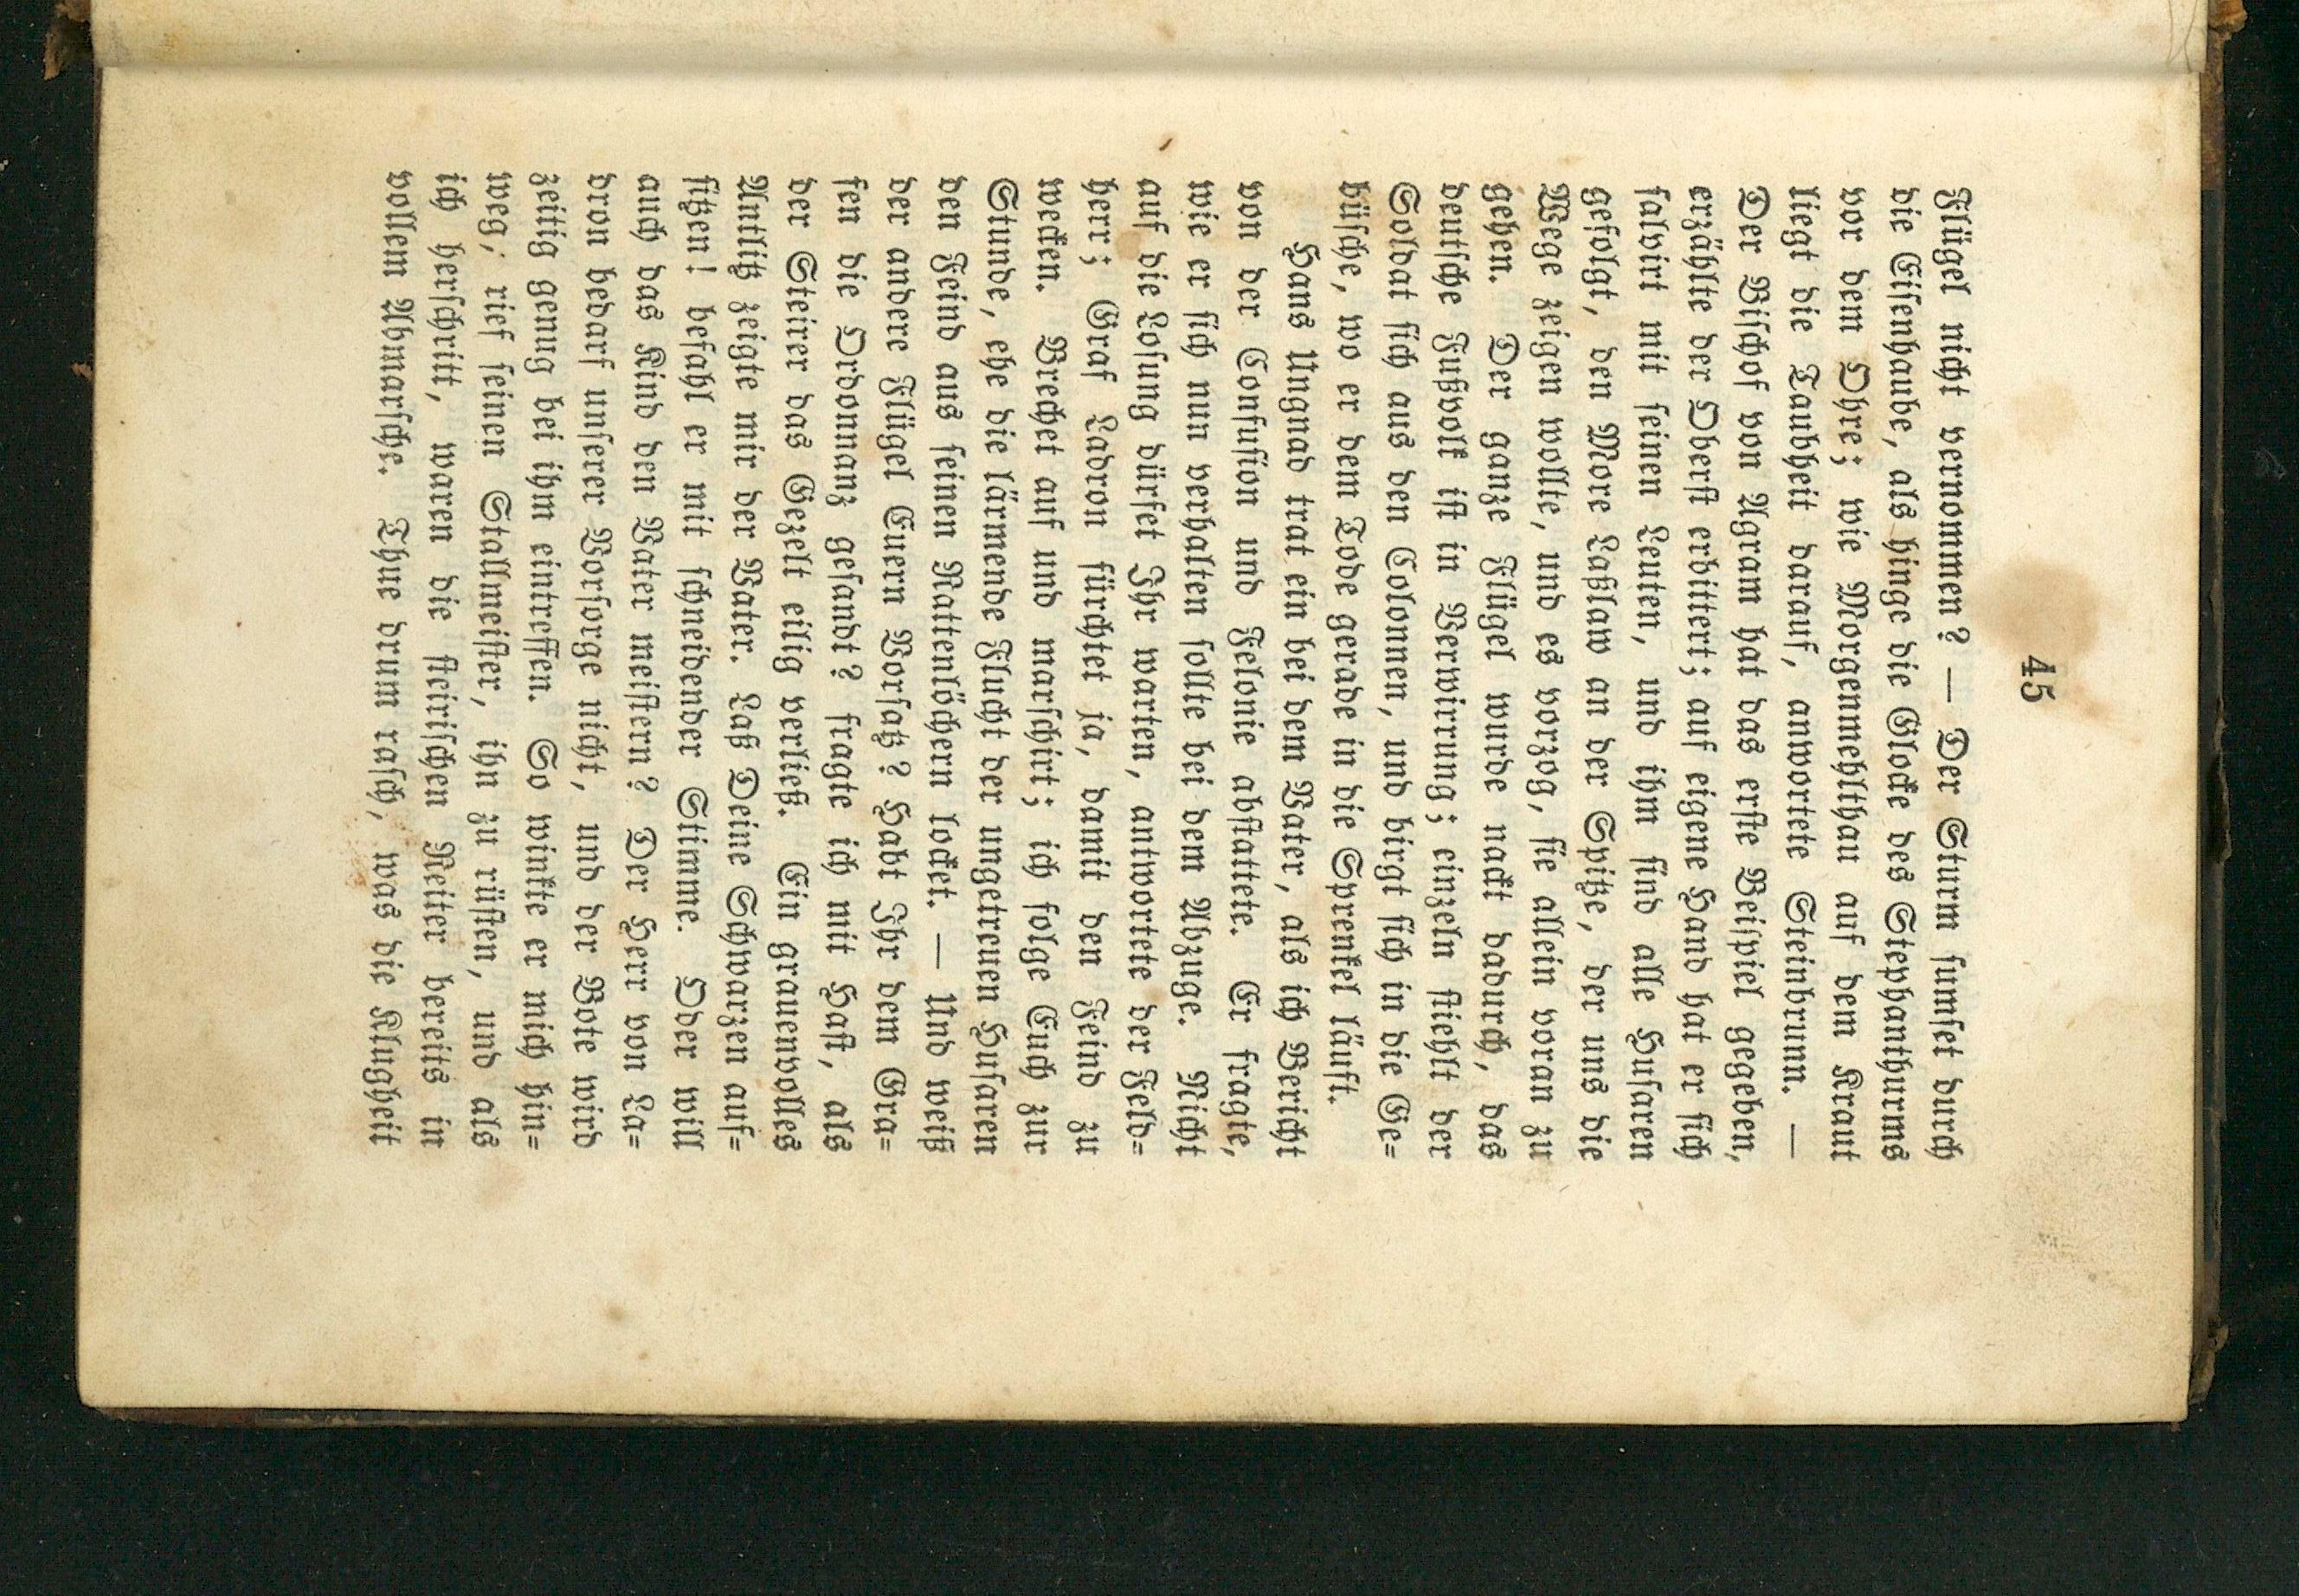 45
Flügel nicht vernommen? — Der Sturm sumset durch
die Eisenhaube, als hinge die Glocke des Stephanthurms
vor dem Ohre; wie Morgenmehlthau auf dem Kraut
liegt die Taubheit darauf, anwortete Steinbrunn. —
Der Bischof von Agram hat das erste Beispiel gegeben,
erzählte der Oberst erbittert; auf eigene Hand hat er sich
salvirt mit seinen Leuten, und ihm sind alle Husaren
gefolgt, den More Laßlaw an der Spitze, der uns die
Wege zeigen wollte, und es vorzog, sie allein voran zu
gehen. Der ganze Flügel wurde nackt dadurch, das
deutsche Fußvolk ist in Verwirrung; einzeln stiehlt der
Soldat sich aus den Colonnen, und birgt sich in die Ge=
büsche, wo er dem Tode gerade in die Sprenkel läuft.
Hans Ungnad trat ein bei dem Vater, als ich Bericht
von der Confusion und Felonie abstattete. Er fragte,
wie er sich nun verhalten sollte bei dem Abzuge. Nicht
auf die Losung dürfet Ihr warten, antwortete der Feld=
herr; Graf Ladron fürchtet ja, damit den Feind zu
wecken. Brechet auf und marschirt; ich folge Euch zur
Stunde, ehe die lärmende Flucht der ungetreuen Husaren
den Feind aus seinen Rattenlöchern locket. — Und weiß
der andere Flügel Euern Vorsatz? Habt Ihr dem Gra=
fen die Ordonnanz gesandt? fragte ich mit Hast, als
der Steirer das Gezelt eilig verließ. Ein grauenvolles
Antlitz zeigte mir der Vater. Laß Deine Schwarzen auf=
sitzen! befahl er mit schneidender Stimme. Oder will
auch das Kind den Vater meistern? Der Herr von La=
dron bedarf unserer Vorsorge nicht, und der Bote wird
zeitig genug bei ihm eintreffen. So winkte er mich hin=
weg, rief seinen Stallmeister, ihn zu rüsten, und als
ich herschritt, waren die steirischen Reiter bereits in
vollem Abmarsche. Thue drum rasch, was die Klugheit